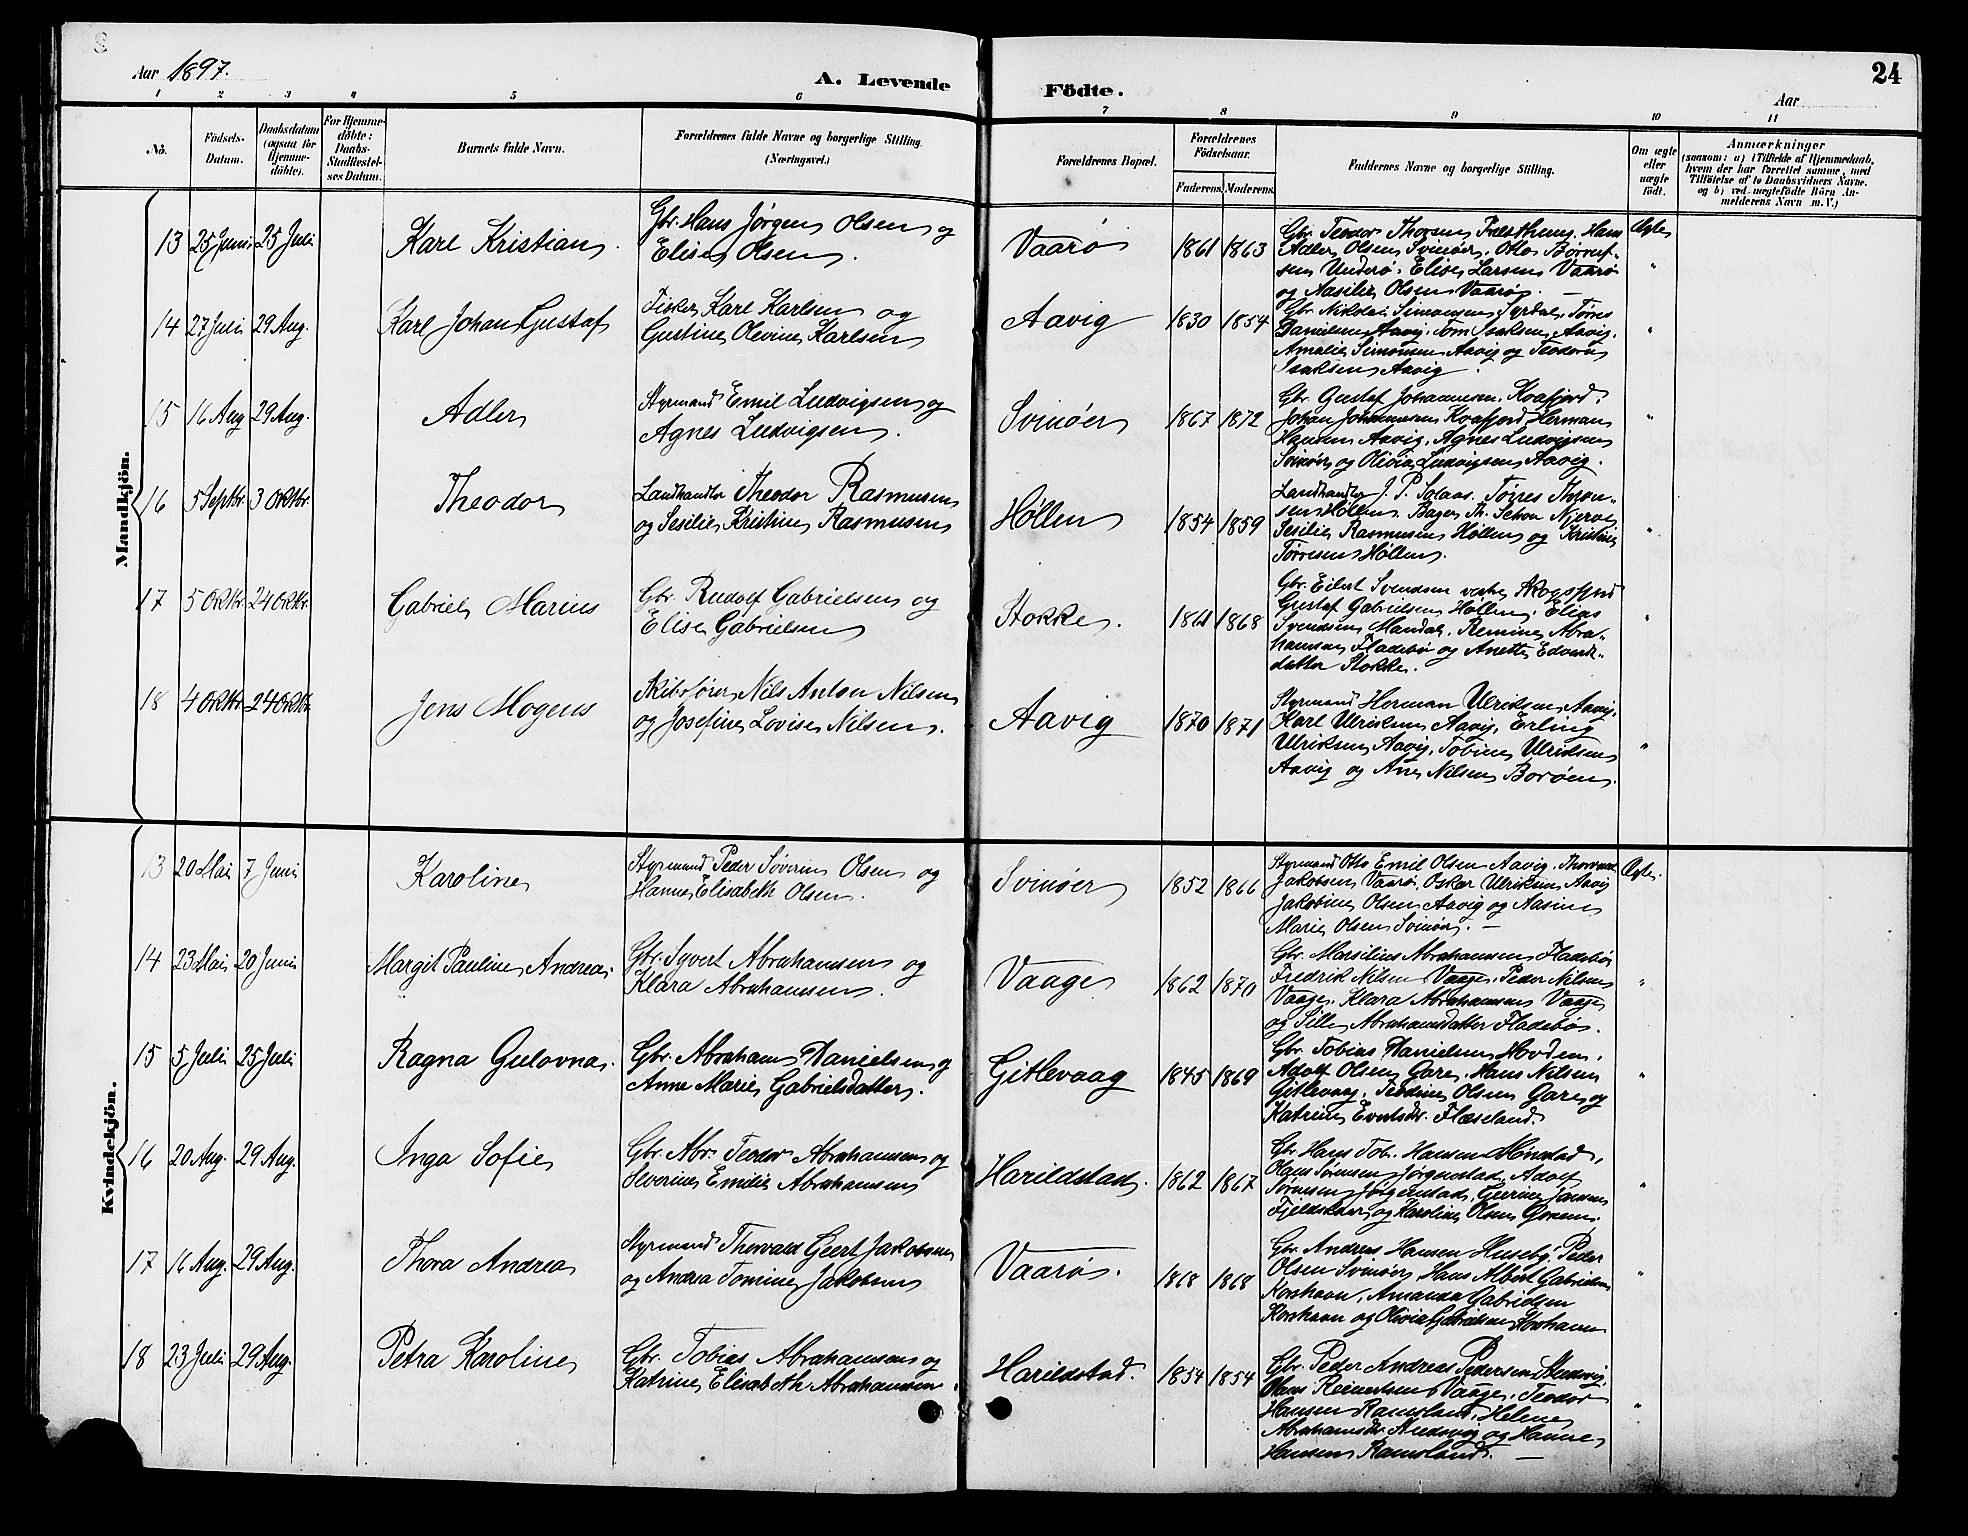 Aar 1897.
A. Levende Födte.
24
Aar
1 2 3 4 5 6 7 8 9 10 11
No.
Födsels-Datum.
Daabsdatum (ogsaa for Hjemmedöbte).
For Hjemmedöbte: Daabs-Stadfæstelses Datum.
Barnets fulde Navn.
Forældrenes fulde Navne og borgerlige Stilling. (Næringsvei.)
Forældrenes Bopæl.
Forældrenes Födselsaar.
Faderens. Moderens.
Faddernes Navne og borgerlige Stilling.
Om ægte eller uægte födt.
Anmærkninger
(saasom: a) i Tilfælde af Hjemmedaab, hvem der har forrettet samme, med Tilföielse af to Daabsvidners Navne, og b) ved uægtefödte Börn Anmelderens Navn m. V.)
Mandkjön.
13 25 Juni 25 Juli Karl Kristian.
Gbr. Hans Jørgen Olsen og
Elise Olsen.
Vaarø 1861 1863
Gbr. Teodor Thorsen, Hans
Adler Olsen Svinøer, Otto
Underø, Elise Larsen Vaarø
og Aasilie Olsen Vaarø. —
Ægte
14 27 Juli 29 Aug. Karl Johan Gustaf
Fisker Karl Karlsen og
Gustine Olevine Karlsen
Aavig 1830 1854
Gbr. Nikolai Simonsen Syrdal, Tørres
Danielsen Aavig, Tom Isaksen Aavig,
Amalie Simonsen Aavig og Teodora
Isaksen Aavig.
"
15 16 Aug 29 Aug. Adler
Styrmand Emil Ludvigsen og
Agnes Ludvigsen.
Svinøer 1867 1872
Gbr. Gustaf Johannesen Kvafjord,
Johan Johannesen Kvafjord, Herman
Hansen Aavig, Agnes Ludvigsen
Svinør og Olivia Ludvigsen Aavig.
"
16 5 Septbr. 3 Oktbr. Theodor
Landhandler Theodor Rasmusen
og Sesilie Kristine Rasmusen
Høllen 1854 1859
Landhandler J. P. Solaas, Tørres
Høllen, Bager Th. Schon
Sesilie Rasmusen Høllen og Kristine
Tørresen Høllen.
"
17 5 Oktbr. 24 Oktbr. Gabriel Marius
Gbr. Rudolf Gabrielsen og
Elise Gabrielsen
Stokke. 1861 1868
Gbr. Eilert Svendsen vestre Skogsfjord
Gustaf Gabrielsen Høllen, Elias
Svendsen Mandal, Remine Abra-
hamsen Fladebø og Anette
datter Stokke.
"
18 4 Oktbr. 24 Oktbr. Jens Mogens
Skibsfører Nils Anton Nilsen
og Josefine Lovise Nilsen.
Aavig 1870 1871
Styrmand Herman Ulriksen Aavig,
Karl Ulriksen Aavig, Erling
Ulriksen Aavig, Tobine Ulriksen
Aavig og Ane Nilsen Borøen.
"
Kvindekjön.
13 20 Mai 7 Juni Karoline
Styrmand Peder Søverin Olsen og
Hanne Elisabeth Olsen.
Svinøer 1852 1866
Styrmand Otto Emil Olsen Aavig, Thorvald
Jakobsen Vaarø, Oskar Ulriksen Aavig
Jakobine Olsen Aavig og Aasine
Marie Olsen Svinør. —
Ægte.
14 23 Mai 20 Juni Margit Pauline Andrea.
Gbr. Syvert Abrahamsen og
Klara Abrahamsen.
Vaage 1862 1870
Gbr. Marsilius Abrahamsen Fladebø
Fredrik Nilsen Vaage, Peder Nilsen
Vaage, Klara Abrahamsen Vaage
og Sille Abrahamsdatter Fladebø.
"
15 5 Juli 25 Juli Ragna Gulovna.
Gbr. Abraham Danielsen og
Anne Marie Gabrielsdatter.
Gitlevaag 1845 1869
Gbr. Tobias Danielsen Hovden,
Adolf Olsen Gare, Hans Nilsen
Gitlevaag, Teodine Olsen Gare og
Katrine Evertsdr. Flæseland.
"
16 20 Aug. 29 Aug. Inga Sofie
Gbr. Abr. Teodor Abrahamsen og
Severine Emilie Abrahamsen
Harildstad. 1862 1867
Gbr. Hans Tob. Hansen Hønstad,
Olaus Sørensen Jørgenstad, Adolf
Sørensen Jørgenstad, Jansen
Fjeldskaar og Karoline Olsen
"
17 16 Aug. 29 Aug. Thora Andrea
Styrmand Thorvald Geert Jakobsen
og Andrea Tomine Jakobsen
Vaarø. 1868 1868
Gbr. Andreas Hansen Huseby, Peder
Olsen Svinøer, Hans Albert Gabrielsen
Korshavn, Amanda Gabrielsen
Korshavn og Olivia Gabrielsen Korshavn
"
18 23 Juli 29 Aug. Petra Karoline
Gbr. Tobias Abrahamsen og
Katrine Elisabeth Abrahamsen.
Harildstad. 1854 1854
Gbr. Peder Andreas Pedersen Studsvig,
Olaus Reinertsen Vaage, Teodor
Hansen Ramsland, Helene
Abrahamsdr. Studsvig og Hanne
Hansen Ramsland. —
"